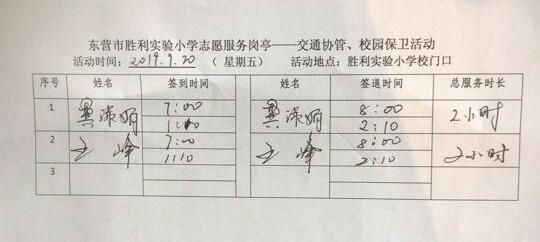 东营市胜利实验小学志愿服务岗亭——交通协管、校园保卫活动
活动时间：2019.9.20 （ 星期五） 活动地点：胜利实验小学校门口
序号 姓名 签到时间 姓名 签退时间 总服务时长
1 7:00 8:00 2小时
1:10 2:10
2 王峰 7:00 王峰 8:00 2小时
1:10 2:10
3